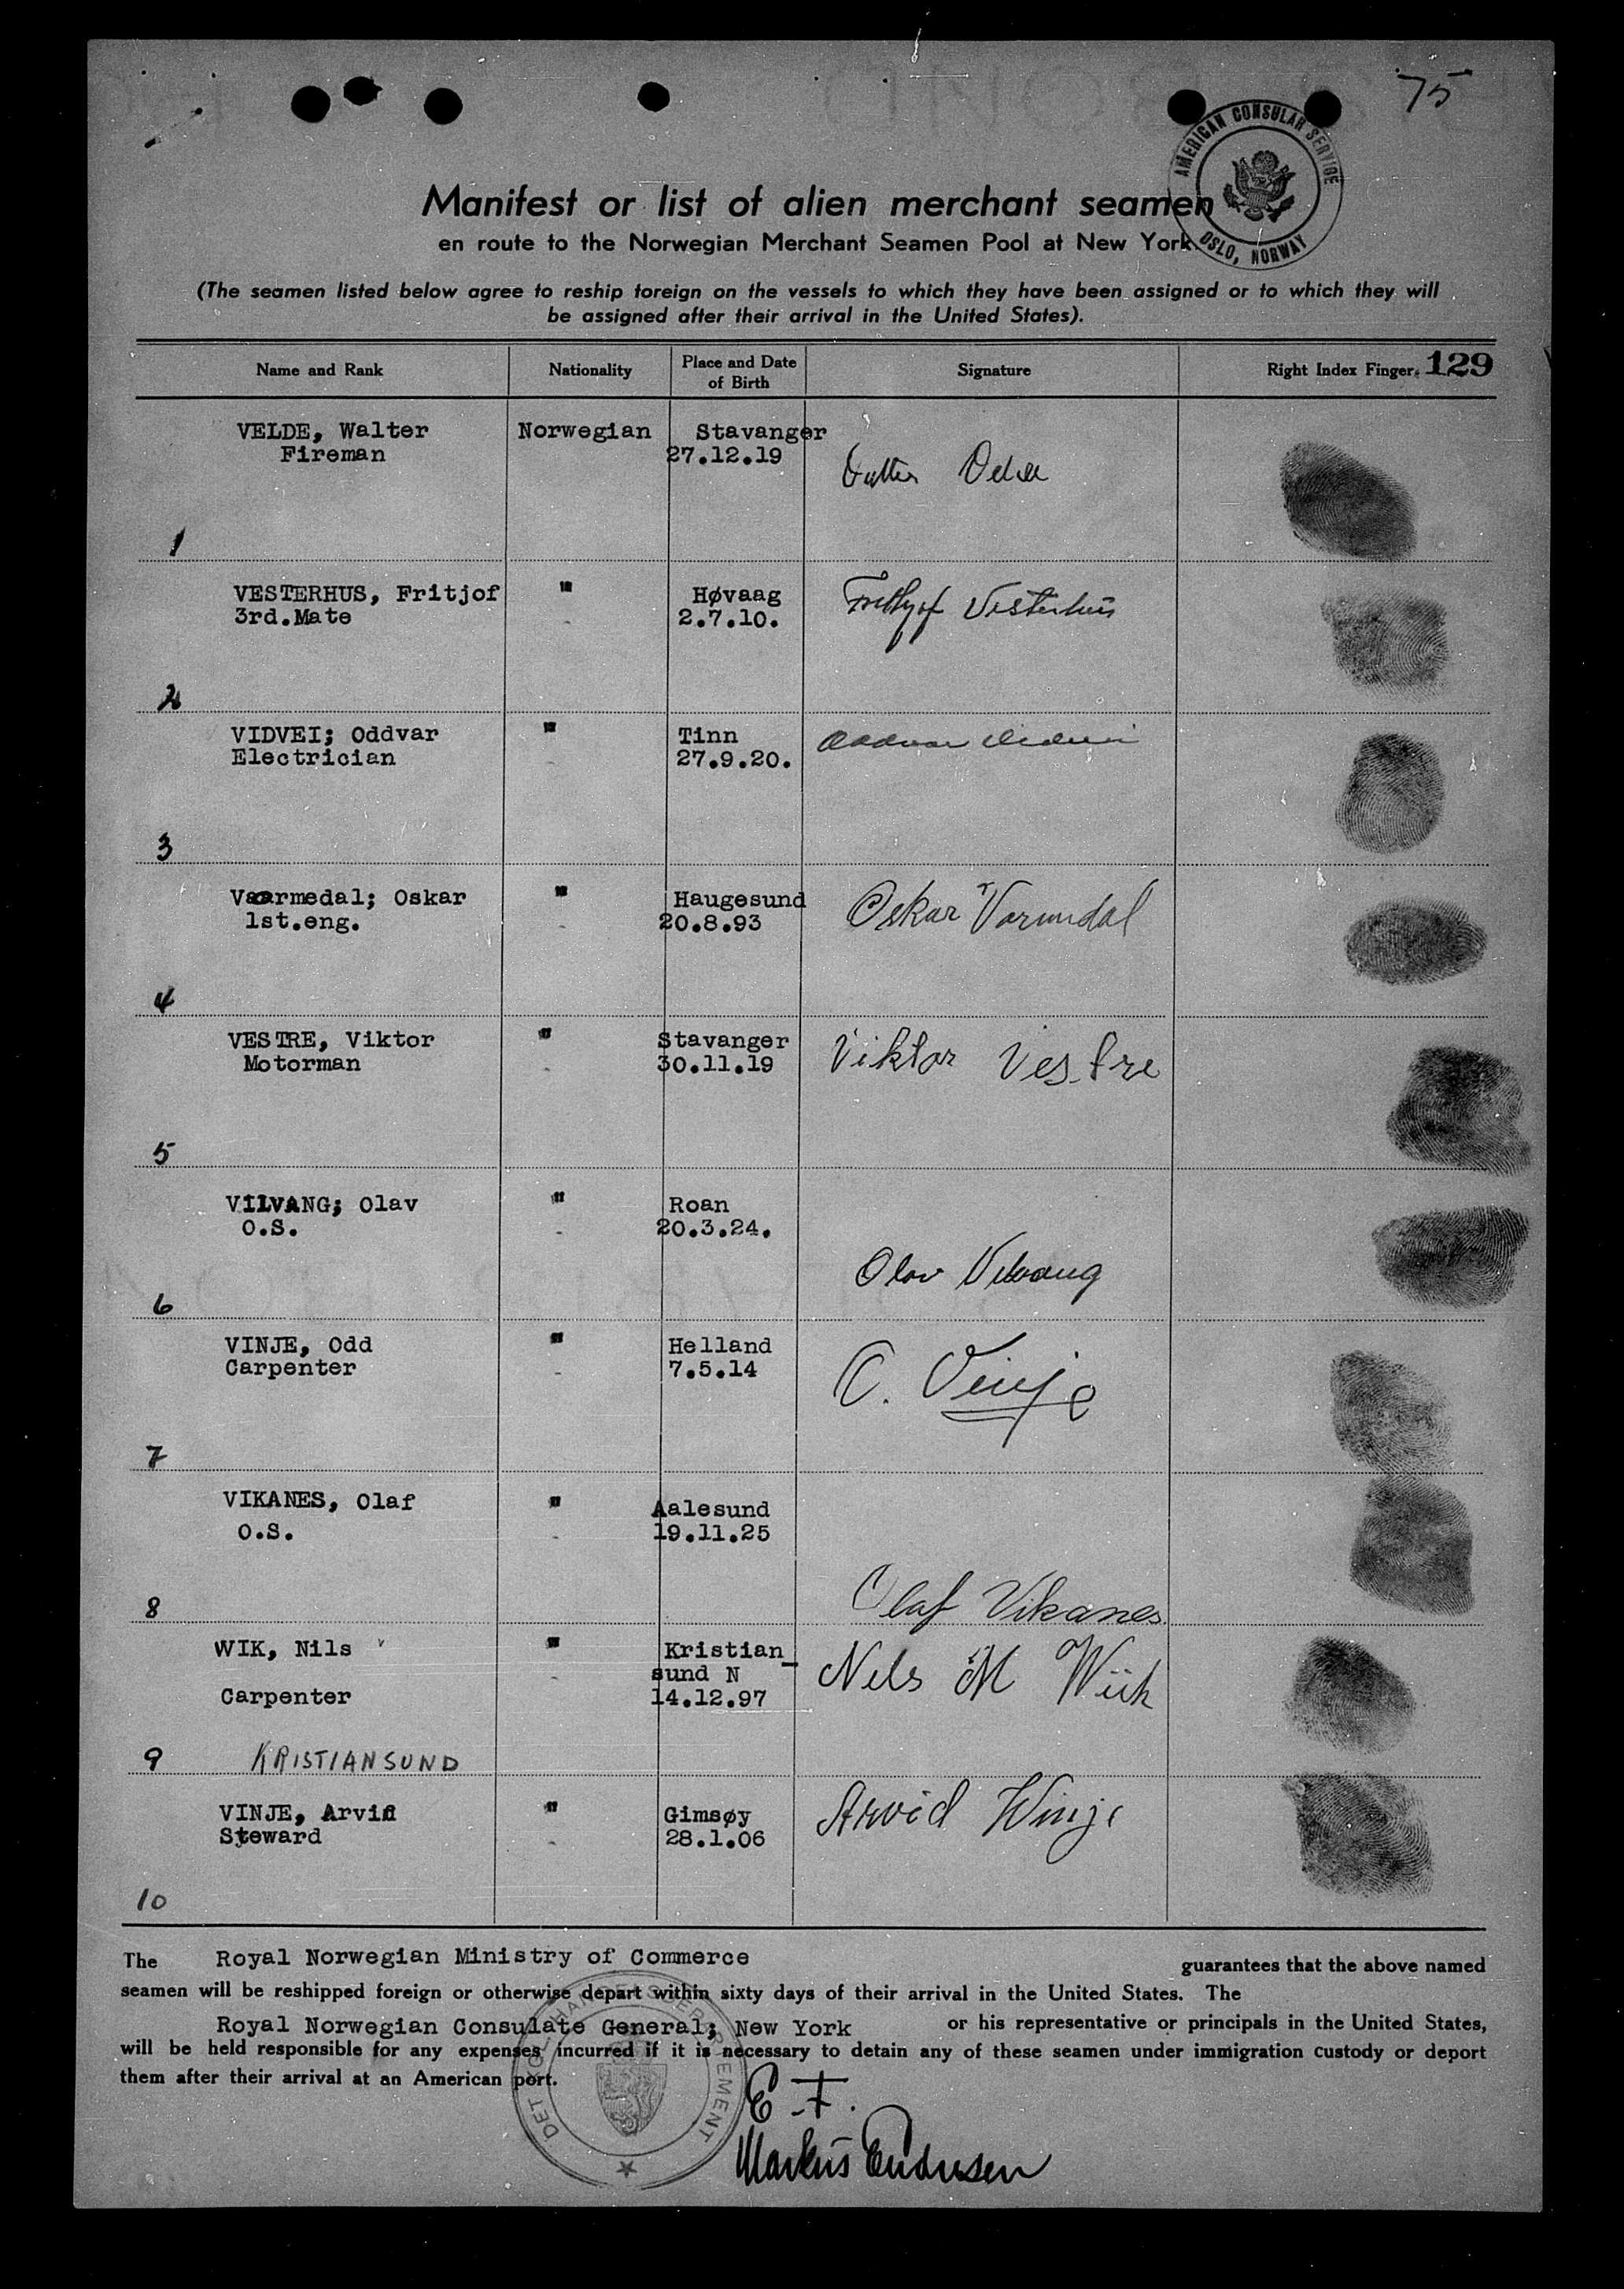 75
AMERICAN CONSULAR SERVICE
OSLO, NORWAY
Manifest or list of alien merchant seamen
en route to the Norwegian Merchant Seamen Pool at New York.
(The seamen listed below agree to reship foreign on the vessels to which they have been assigned or to which they will
be assigned after their arrival in the United States).
Name and Rank Nationality Place and Date of Birth Signature Right Index Finger. 129
VELDE, Walter Norwegian Stavanger
Fireman 27.12.19
1
VESTERHUS, Fritjof " Høvaag Vesterhus
3rd.Mate 2.7.10.
2
VIDVEI; Oddvar " Tinn Oddvar Vidvei
Electrician 27.9.20.
3
Vaarmedal; Oskar " Haugesund Oskar Varmdal
1st.eng. 20.8.93
4
VESTRE, Viktor " Stavanger Viktor Vestre
Motorman 30.11.19
5
VILVANG; Olav " Roan
O.S. 20.3.24.
Olav Vilvang
6
VINJE, Odd " Helland O. Vinje
Carpenter 7.5.14
7
VIKANES, Olaf " Aalesund
O.S. 19.11.25
Olaf Vikanes
8
WIK, Nils " Kristian_ Nils M Wiik
sund N
Carpenter 14.12.97
9 KRISTIANSUND
VINJE, Arvid " Gimsøy Arvid Winje
Steward 28.1.06
10
The Royal Norwegian Ministry of Commerce guarantees that the above named
seamen will be reshipped foreign or otherwise depart within sixty days of their arrival in the United States. The
Royal Norwegian Consulate General; New York or his representative or principals in the United States,
will be held responsible for any expenses incurred if it is necessary to detain any of these seamen under immigration custody or deport
them after their arrival at an American port.
DET KGL. HANDELSDEPARTEMENT
E.F.
Markus Endresen